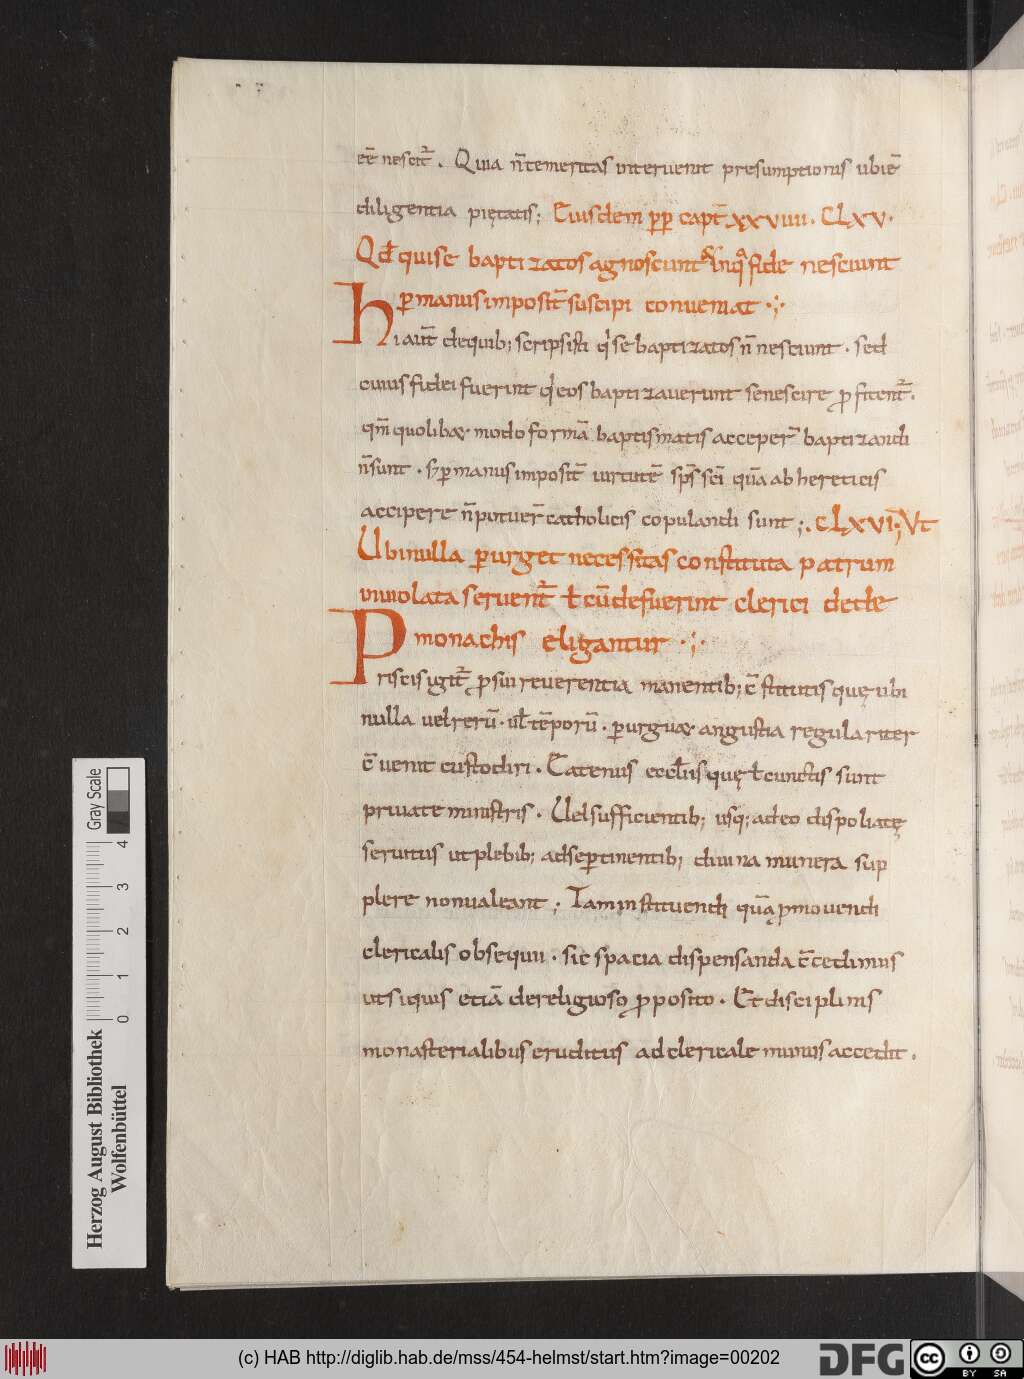 eē nescit᷑. Quia n̄ temeritas interuenit presumptionis ubi ē
diligentia piętatis; Eiusdem pp̄ capt̄ xxviiii. CLXV.
Qđ qui se baptizatos agnoscunt s; in q̄ fide nesciunt
ꝑ manus imposit̄ suscipi conueniat
Hi aut̄ de quib; scripsisti qđ se baptizatos n̄ nesciunt. sed
cuius fidei fuerint qđ eos baptizauerunt se nescire ꝓfitent᷑.
qm̄ quolibet modo formā baptismatis acceper̄ baptizandi
n̄ sunt. s; ꝑ manus imposit̄ uirtutē sp̄s sc̄i quā ab hereticis
accipere n̄ potuer̄ catholicis copulandi sunt; CLXVI; Vt
Ubi nulla ꝑurget necessitas constituta patrum
inuiolata seruent᷑ et cū defuerint clerici de
monachis eligantur
Priscis igit᷑ ꝓ sui reuerentia manentib; c̄stitutis quę ubi
nulla uel rerū. uł tēporū. ꝑurguet angustia regulariter
c̄uenit custodiri. Eatenus eccłiis quę ł cunctis sunt
priuate ministris. Uel sufficientib; usq; adeo dispoliatę
seruitiis ut plebib; ad se ꝑtinentib; diuina munera sup
plere non ualeant; Tam instituendi quā ꝓmouendi
clericalis obsequii. sic spacia dispensanda c̄cedimus
ut siquis etiā de religioso ꝓposito. Et disciplinis
monasterialibus eruditus ad clericale munus accedit.
Gray Scale
4
3
2
1
0
Herzog August Bibliothek
Wolfenbüttel
(c) HAB http://diglib.hab.de/mss/454-helmst/start.htm?image=00202
DFG
cc
BY SA